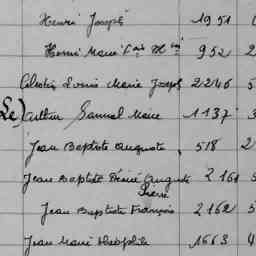 Henri Joseph 1951
Henri Marie 952 2
Célestin Louis Marie Joseph 2246 5
Le) Arthur Samuel Marie 1137 3
Jean Baptiste Auguste 518 2
Jean Baptiste Désiré Auguste 2161 5
Pierre
Jean Baptiste François 2162 5
Jean Marie Théophile 1663 4